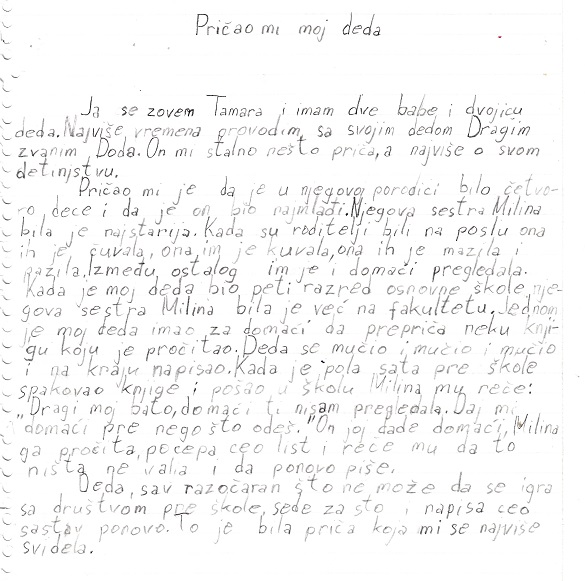 Pričao mi moj deda
Ja se zovem Tamara i imam dve babe i dvojicu
deda. Najviše vremena provodim, sa svojim dedom Dragim
zvanim Doda. On mi stalno nešto priča, a najviše o svom
detinjstvu.
Pričao mi je da je u njegovoj porodici bilo četvo-
ro dece i da je on bio najmlađi. Njegova sestra Milina
bila je najstarija. Kada su roditelji bili na poslu ona
ih je čuvala, ona im je kuvala, ona ih je mazila i
pazila. Između ostalog im je i domaći pregledala.
Kada je moj deda bio peti razred osnovne škole, nje-
gova sestra Milina bila je već na fakultetu. Jednom
je moj deda imao za domaći da prepriča neku knji-
gu koju je pročitao. Deda se mučio i mučio i mučio
i na kraju napisao. Kada je pola sata pre škole
spakovao knjige i pošao u školu Milina mu reče:
"Dragi moj bato, domaći ti nisam pregledala. Daj mi
domaći pre nego što odeš. "On joj dade domaći, Milina
ga pročita, pocepa ceo list i reče mu da to
ništa ne valja i da ponovo piše.
Deda, sav razočaran što ne može da se igra
sa društvom pre škole, sede za sto i napisa ceo
sastav ponovo. To je bila priča koja mi se najviše
svidela.